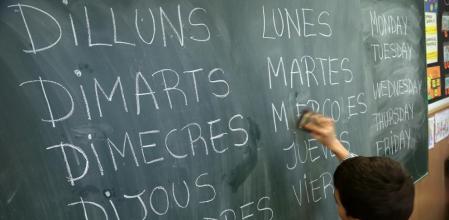 DILLUNS LUNES MONDAY
TUESDAY
DIMARTS MARTES
WEDNESDAY
DIMECRES MIERCOLES THURSDAY
JUEVES FRIDAY
DIJOUS VIER
RES